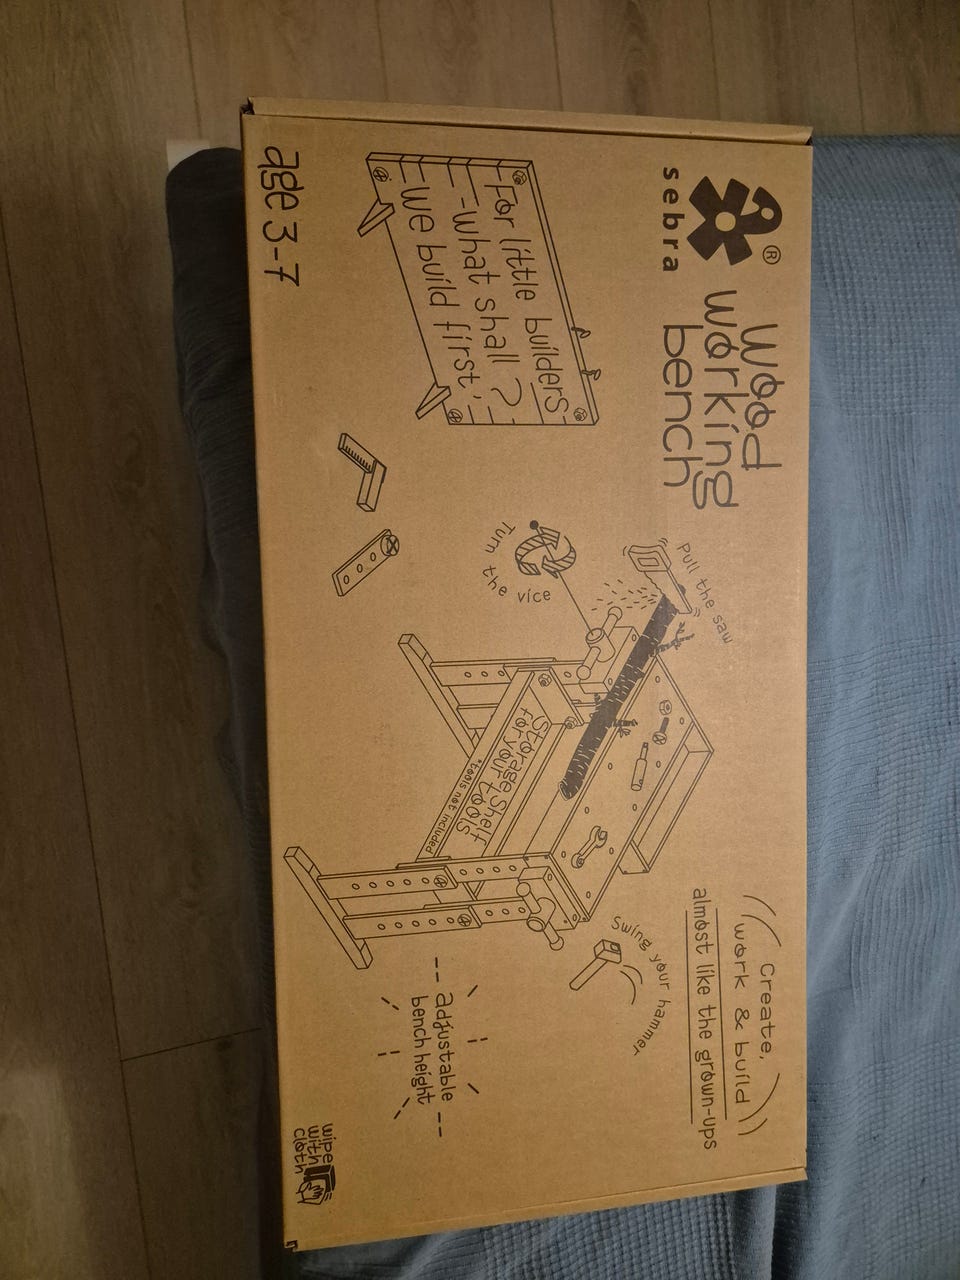 sebra
®
Wood
working
bench
Create,
work & build
almost like the grown-ups
For little builders
-what shall ?
we build first
Pull the saw
Turn the vice
Storage shelf
for your tools
*tools not included
Swing your hammer
adjustable
bench height
age 3-7
wipe
with
cloth